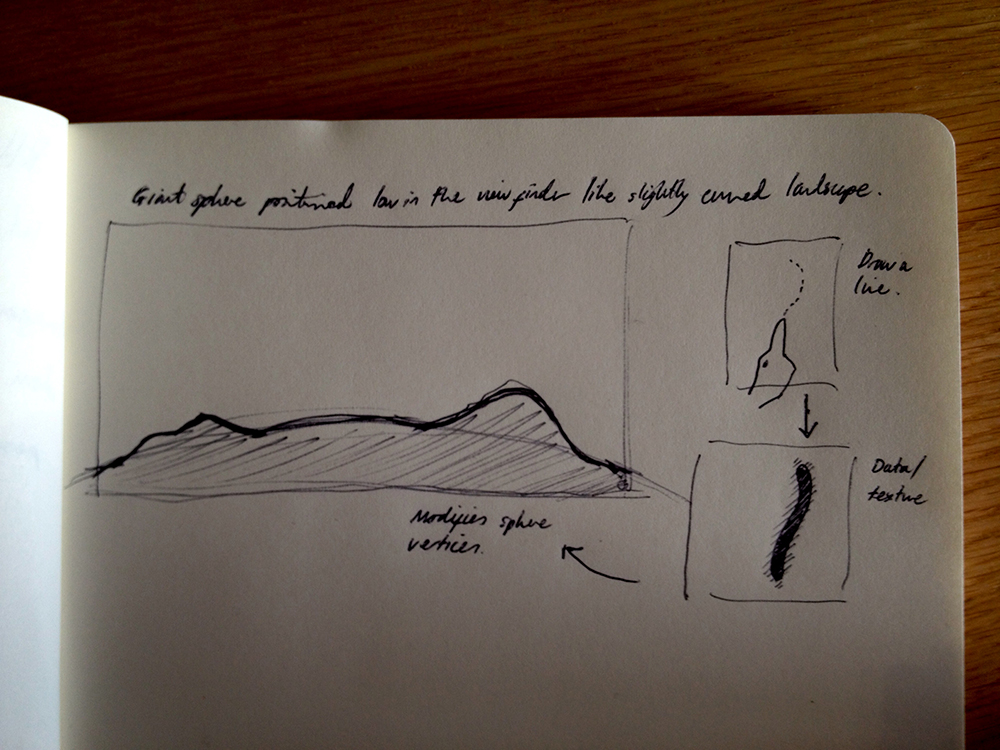 Giant sphere positioned low in the viewfinder like slightly curved landscape.
Draw a
line.
Data/
texture
Modifies sphere
vertices.